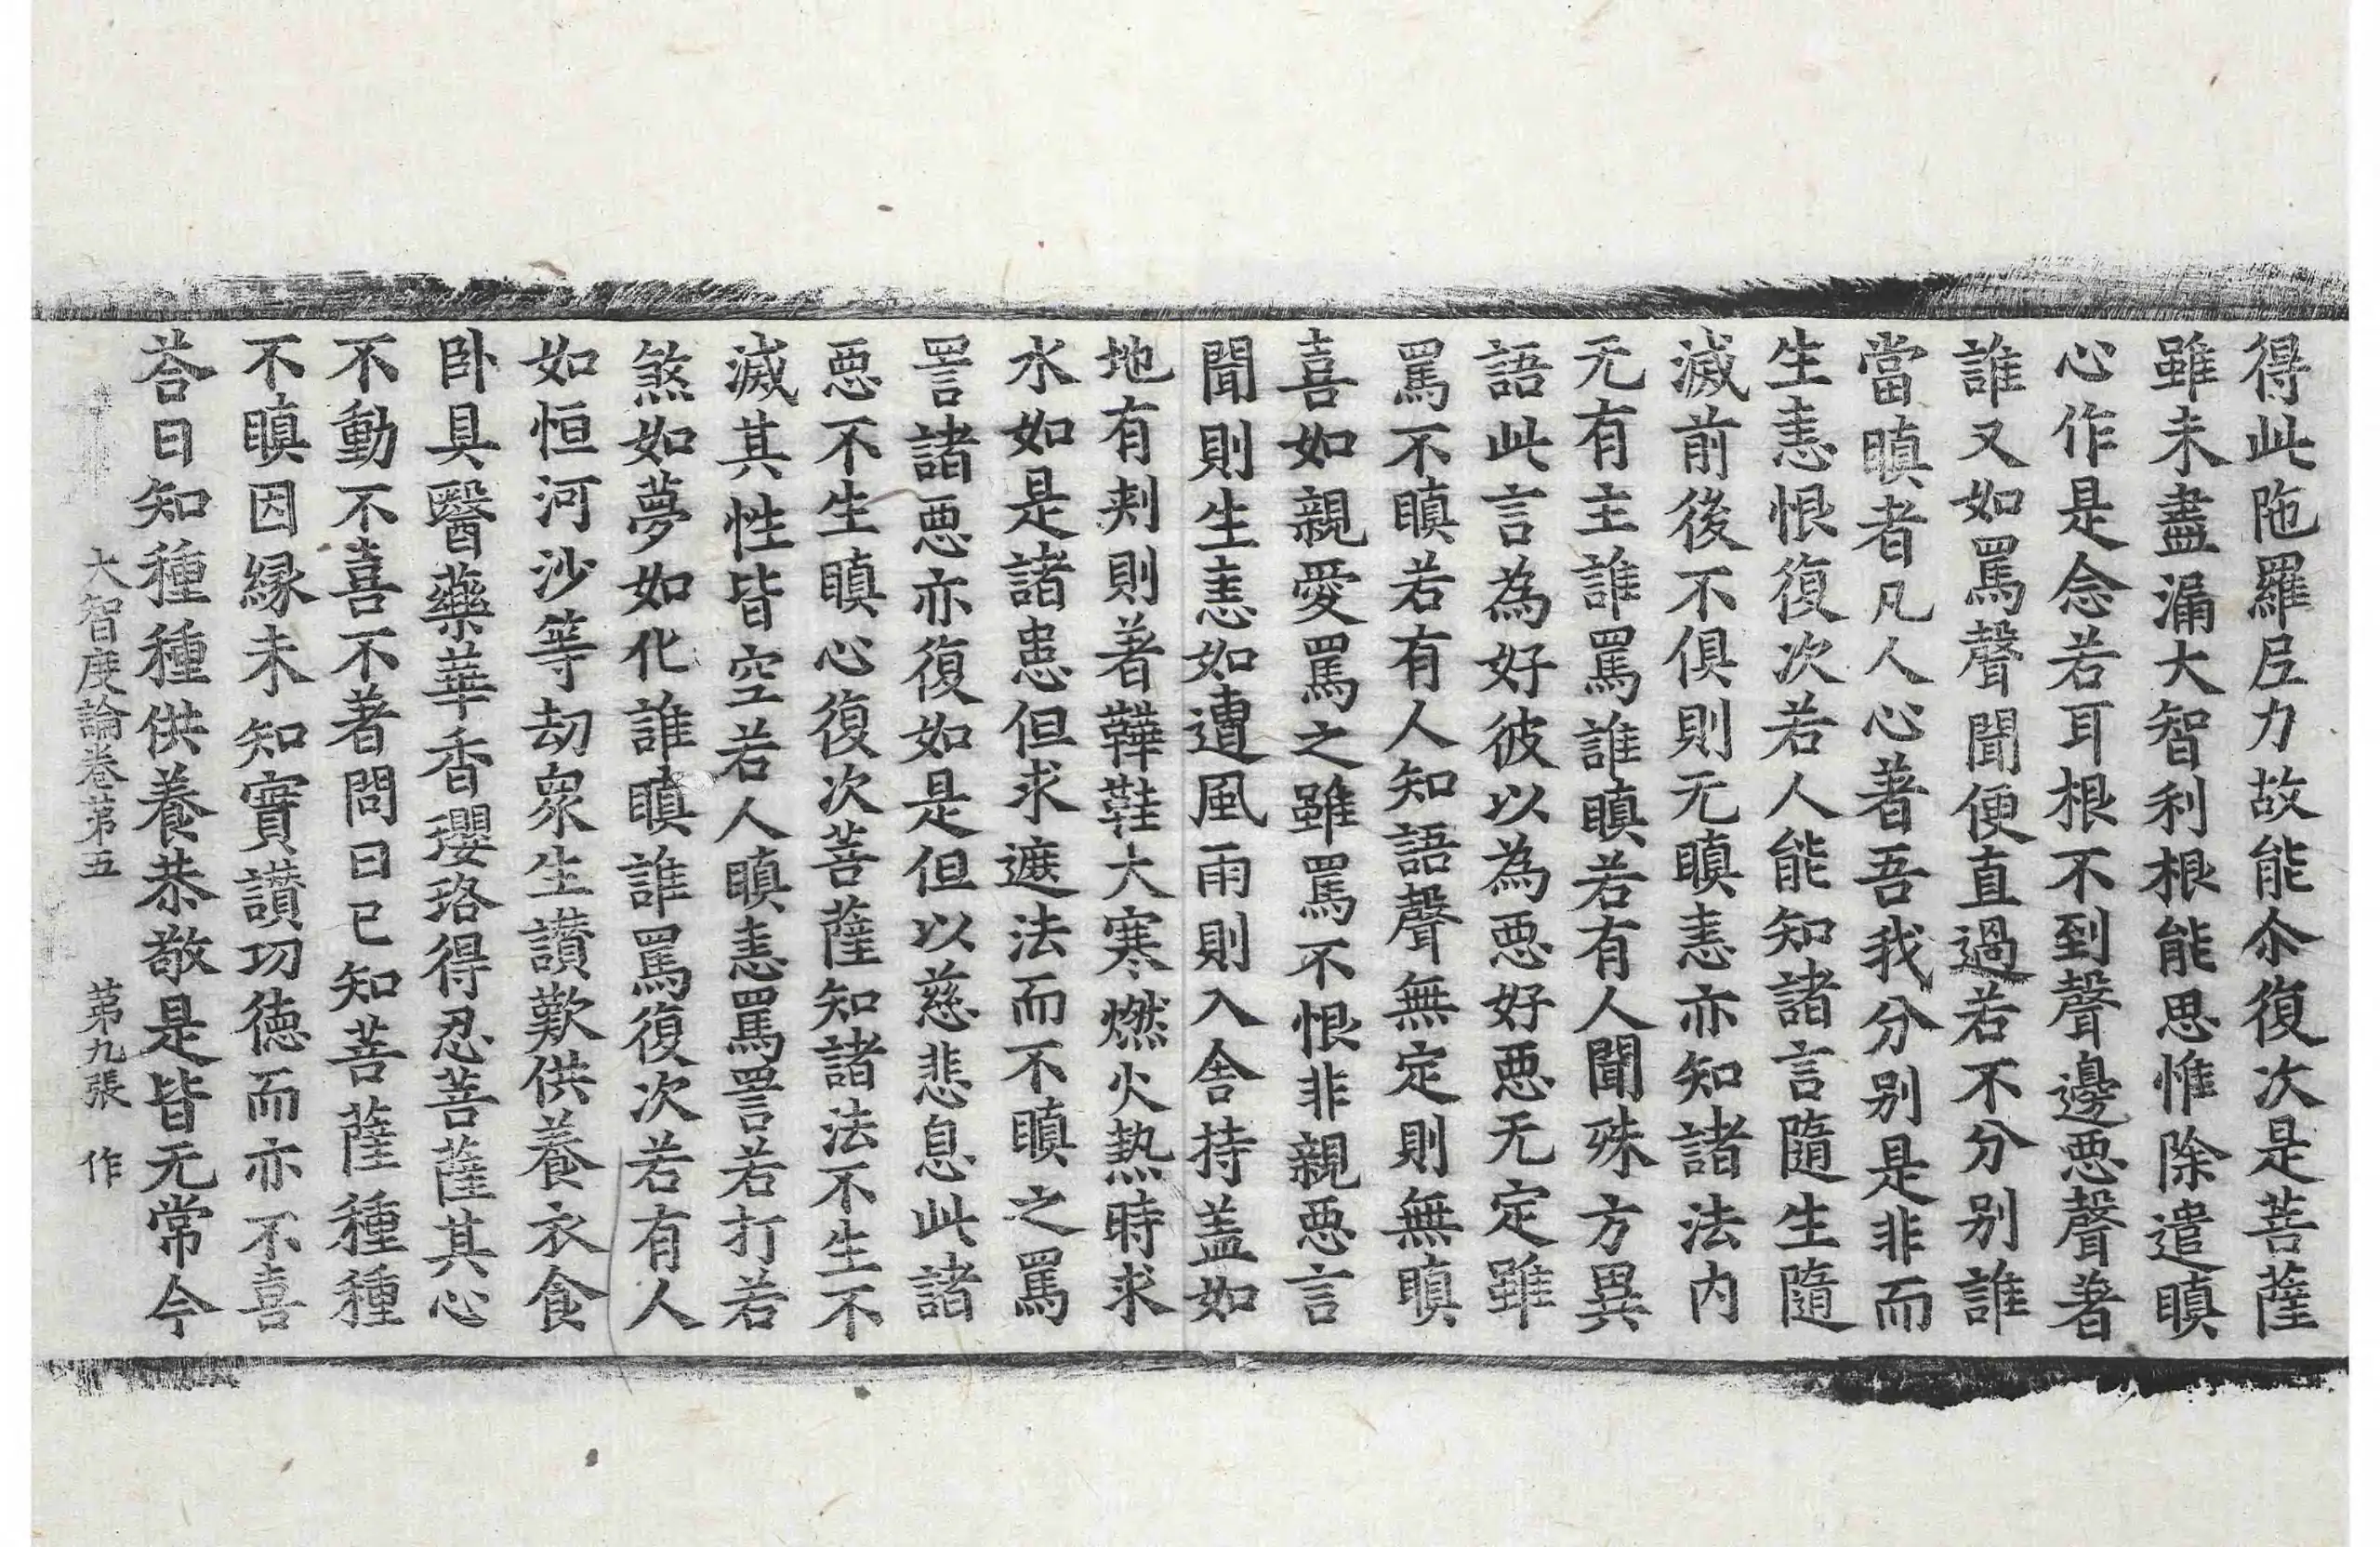 得此陁羅𡰱力故能尒復次是菩薩
雖未盡漏大智利根能思惟除遣瞋
心作是念若耳根不到聲邊悪聲著
誰又如罵聲聞便直過若不分別誰
當瞋者凡人心著吾我分别是非而
生恚恨復次若人能知諸言隨生隨
滅前後不俱則无瞋恚亦知諸法内
无有主誰罵誰瞋若有人聞殊方異
語此言為好彼以為悪好悪无定雖
罵不瞋若有人知語聲無定則無瞋
喜如親愛罵之雖罵不恨非親悪言
聞則生恚如遭風雨則入舍持盖如
地有刾則著鞾鞋大寒燃火热時求
水如是諸患但求遮法而不瞋之罵
詈諸悪亦復如是但以慈悲息此諸
悪不生瞋心復次菩薩知諸法不生不
滅其性皆空若人瞋恚罵詈若打若
煞如夢如化誰瞋誰罵復次若有人
如恒河沙等劫衆生讃歎供養衣食
卧具醫藥華香瓔珞得忍菩薩其心
不動不喜不著問曰已知菩薩種種
不瞋因縁未知實讃功德而亦不喜
荅曰知種種供養恭敬是皆无常今
大智度論卷苐五　苐九張　作